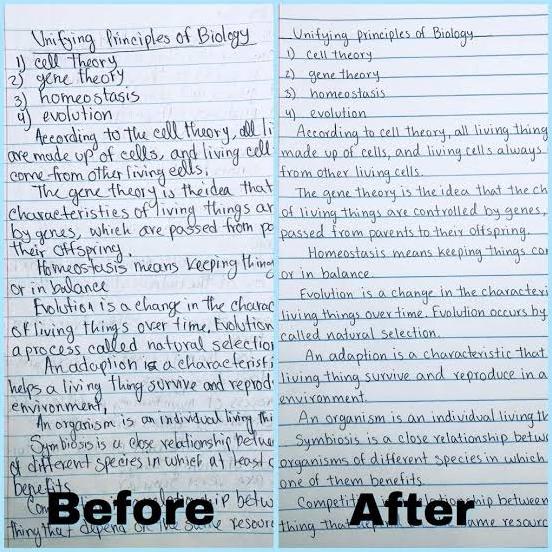 Unifying Principles of Biology
1) cell theory
2) gene theory
3) homeostasis
4) evolution
According to the cell theory, all li
are made up of cells, and living cell
come from other living cells.
The gene theory is the idea that
characteristics of living things ar
by genes, which are passed from pa
their offspring.
Homeostasis means keeping thing
or in balance
Evolution is a change in the charac
of living things over time. Evolution
a process called natural selection
An adaption is a characteristi
helps a living thing survive and reprod
environment.
An organism is an individual living thi
Symbiosis is a close relationship betwe
of different species in which at least o
benefits.
betw
thing that depend on the same resourc
Before
Unifying principles of Biology
1) cell theory
2) gene theory
3) homeostasis
4) evolution
According to cell theory, all living thing
made up of cells, and living cells always
from other living cells.
The gene theory is the idea that the ch
of living things are controlled by genes,
passed from parents to their offspring.
Homeostasis means keeping things con
or in balance.
Evolution is a change in the characteri
living things over time. Evolution occurs by
called natural selection.
An adaption is a characteristic that
living thing survive and reproduce in a
environment.
An organism is an individual living th
Symbiosis is a close relationship betw
organisms of different species in which
one of them benefits.
between
thing that same resour
After